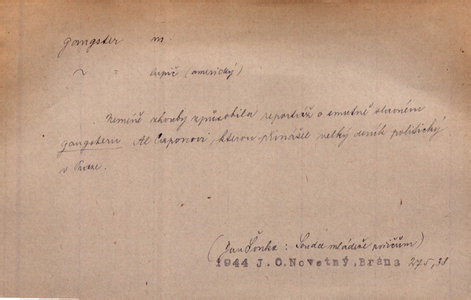 gangster m.
~ " lupič (americký)
Neméně škody způsobila reportáž o smutně slavném
gangsteru Al Caponovi, kterou přinášel velký deník politický
v Praze.
(Jan Čonka: Soudce mládeže poručům)
1944 J. O. Novotný, Praha 275, 38